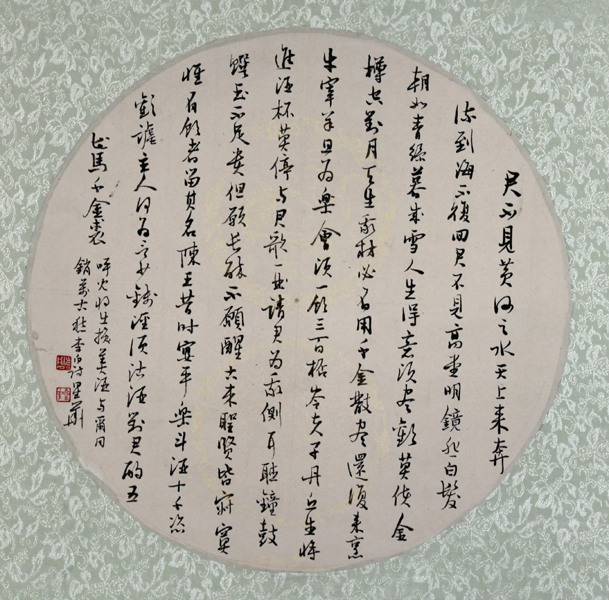 君不見黄河之水天上来奔
流到海不復回君不見高堂明鏡悲白髮
朝如青絲暮成雪人生得意須盡歡莫使金
樽空對月天生我材必有用千金散盡還復来烹
牛宰羊且為樂會須一飲三百杯岑夫子丹丘生將
進酒杯莫停與君歌一曲請君為我側耳聽鐘鼓
饌玉不足貴但願長醉不願醒古来聖賢皆寂寞
惟有飲者留其名陳王昔時宴平樂斗酒十千恣
歡謔主人何為言少錢逕須沽酒對君酌五
花馬千金裘
呼兒将出換美酒與爾同
銷萬古愁李白詩